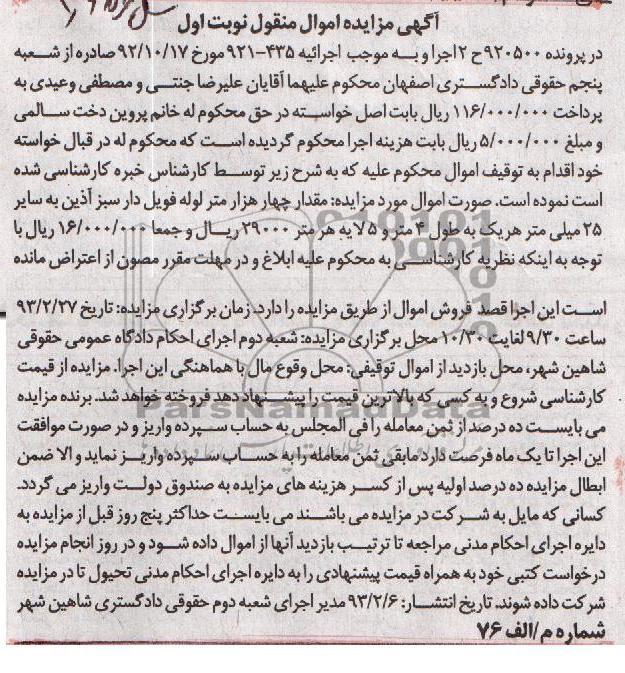 آگهی مزایده اموال منقول نوبت اول
در پرونده ۹۲۰۵۰۰ح ۲ اجرا و به موجب اجرائیه ۴۳۵-۹۲۱ مورخ ۹۲/۱۰/۱۷ صادره از شعبه
پنجم حقوقی دادگستری اصفهان محکوم علیهما آقایان علیرضا جنتی و مصطفی وعیدی به
پرداخت ۱۱۶/۰۰۰/۰۰۰ ریال بابت اصل خواسته در حق محکوم له خانم پروین دخت سالمی
و مبلغ ۵/۰۰۰/۰۰۰ ریال بابت هزینه اجرا محکوم گردیده است که محکوم له در قبال خواسته
خود اقدام به توقیف اموال محکوم علیه که به شرح زیر توسط کارشناس خبره کارشناسی شده
است نموده است. صورت اموال مورد مزایده: مقدار چهار هزار متر لوله فویل دار سبز آذین به سایر
۲۵ میلی متر هریک به طول ۴ متر و ۵ لایه هر متر ۲۹۰۰۰ ریال و جمعا ۱۶/۰۰۰/۰۰۰ ریال با
توجه به اینکه نظریه کارشناسی به محکوم علیه ابلاغ و در مهلت مقرر مصون از اعتراض مانده
است این اجرا قصد فروش اموال از طریق مزایده را دارد. زمان برگزاری مزایده: تاریخ ۹۳/۲/۲۷
ساعت ۹/۳۰ لغایت ۱۰/۳۰ محل برگزاری مزایده: شعبه دوم اجرای احکام دادگاه عمومی حقوقی
شاهین شهر، محل بازدید از اموال توقیفی: محل وقوع مال با هماهنگی این اجرا. مزایده از قیمت
کارشناسی شروع و به کسی که بالاترین قیمت را پیشنهاد دهد فروخته خواهد شد. برنده مزایده
می بایست ده درصد از ثمن معامله را فی المجلس به حساب سپرده واریز و در صورت موافقت
این اجرا تا یک ماه فرصت دارد مابقی ثمن معامله را به حساب سپرده واریز نماید و الا ضمن
ابطال مزایده ده درصد اولیه پس از کسر هزینه های مزایده به صندوق دولت واریز می گردد.
کسانی که مایل به شرکت در مزایده می باشند می بایست حداکثر پنج روز قبل از مزایده به
دایره اجرای احکام مدنی مراجعه تا ترتیب بازدید آنها از اموال داده شود و در روز انجام مزایده
درخواست کتبی خود به همراه قیمت پیشنهادی را به دایره اجرای احکام مدنی تحیول تا در مزایده
شرکت داده شوند. تاریخ انتشار: ۹۳/۲/۶ مدیر اجرای شعبه دوم حقوقی دادگستری شاهین شهر
شماره م/الف ۷۶
ParsNamadData